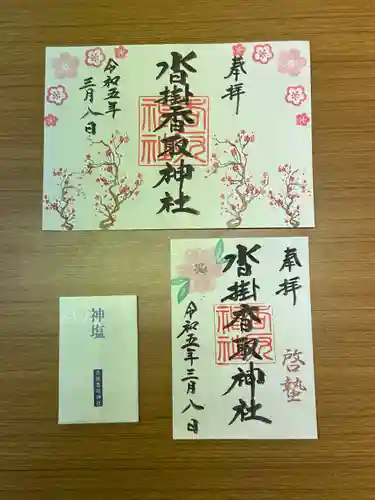 奉拝
沓掛香取神社
令和五年
三月八日
奉拝
啓蟄
沓掛香取神社
令和五年三月八日
神塩